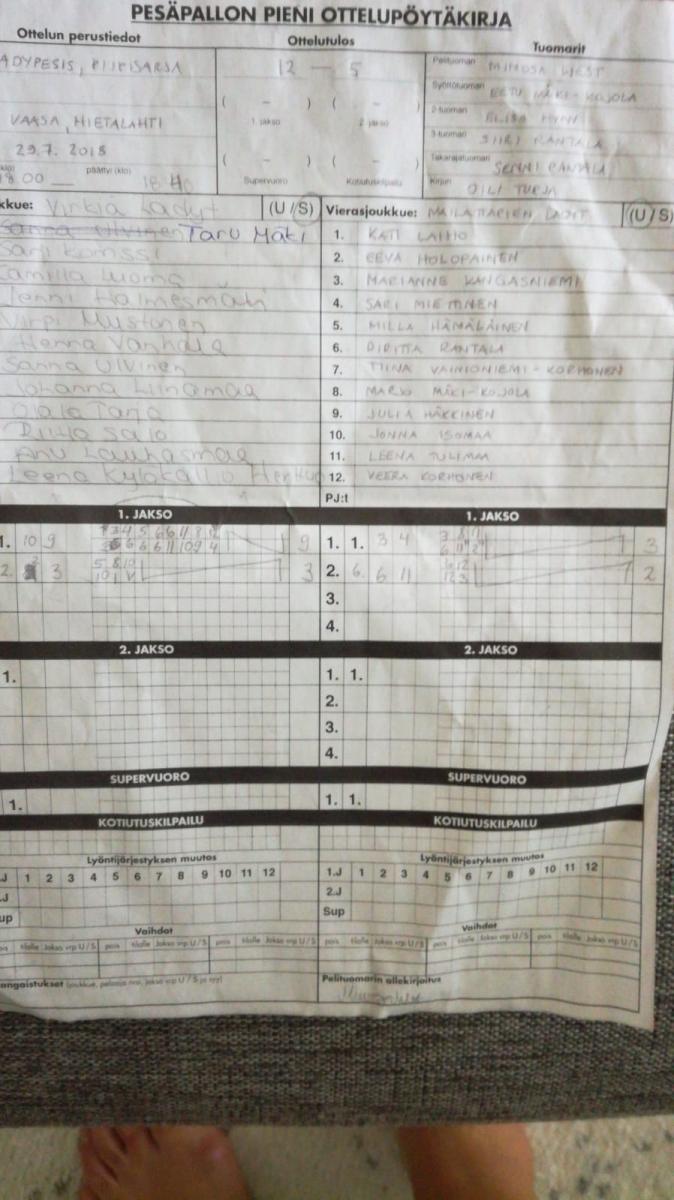 PESÄPALLON PIENI OTTELUPÖYTÄKIRJA
Ottelun perustiedot Ottelutulos Tuomarit
ADYPESIS, PIIRISARJA 12 - 5 Pelituomari MINOSA WEST
( - ) ( - ) Syöttötuomari EETU MÄKI-KOJOLA
VAASA, HIETALAHTI 1. jakso 2. jakso 2-tuomari ELISA
29.7. 2018 3-tuomari SIIRI RANTALA
klo) 18.00 päättyi (klo) 18 40 ( - ) ( - ) Takarajatuomari SENNI RANTALA
Supervuoro Kotiutuskilpailu Kirjuri OILI TURJA
kkue: Virkiä Ladyt (U/S) Vierasjoukkue: MAILATTARIEN LADIT (U/S)
Sanna Ulvinen Taru Mäki 1. KATI LAIHO
Sari Komssi 2. EEVA HOLOPAINEN
Camilla Luoma 3. MARIANNE KANGASNIEMI
Jenni Halmesmäki 4. SARI MIETTINEN
Virpi Mustonen 5. MILLA HÄMÄLÄINEN
Henna Vanhala 6. PIRITTA RANTALA
Sanna Ulvinen 7. TIINA VAINIONIEMI-KORHONEN
Johanna Liinamaa 8. MARJO MÄKI-KOJOLA
Ojala Tarja 9. JULIA HÄKKINEN
Riitta Salo 10. JONNA ISOMAA
Anu Lauhasmaa 11. LEENA TULIMAA
Leena Kyläkallio 12. VEERA KORHONEN
PJ:t
1. JAKSO 1. JAKSO
1. 10 9 9 1. 1. 3 4 3
2. 3 3 2. 6. 6 11 2
3.
4.
2. JAKSO 2. JAKSO
1. 1. 1.
2.
3.
4.
SUPERVUORO SUPERVUORO
1. 1. 1.
KOTIUTUSKILPAILU KOTIUTUSKILPAILU
Lyöntijärjestyksen muutos Lyöntijärjestyksen muutos
.J 1 2 3 4 5 6 7 8 9 10 11 12 1.J 1 2 3 4 5 6 7 8 9 10 11 12
.J 2.J
up Sup
Vaihdot Vaihdot
pois tilalle Jakso vrp U/S pois tilalle Jakso vrp U/S pois tilalle Jakso vrp U/S pois tilalle Jakso vrp U/S pois tilalle Jakso vrp U/S pois tilalle Jakso vrp U/S
angaistukset (joukkue, pelaaja nro, jakso vrp U/S ja syy) Pelituomarin allekirjoitus